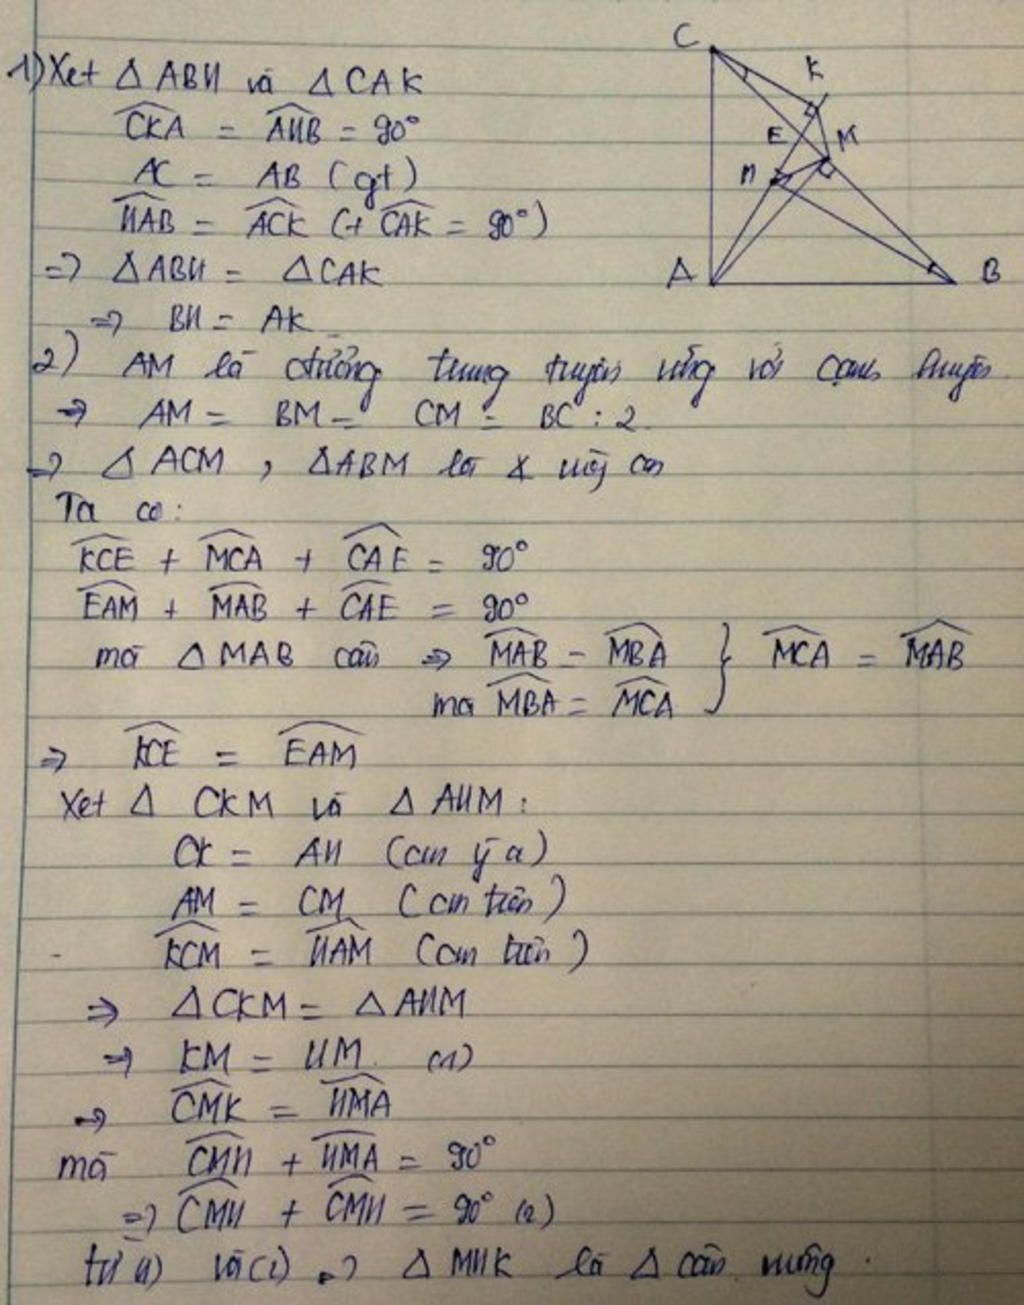 C
K
E
M
H
A
B
1) Xet Δ ABH và Δ CAK
CKA = AHB = 90°
AC = AB (gt)
HAB = ACK (+ CAK = 90°)
=> Δ ABH = Δ CAK
=> BH = AK
2) AM là đường trung tuyến ứng với cạnh huyền
=> AM = BM = CM = BC : 2
=> Δ ACM , Δ ABM là Δ vuông cân
Ta co:
KCE + MCA + CAE = 90°
EAM + MAB + CAE = 90°
mà Δ MAB cân => MAB = MBA } MCA = MAB
ma MBA = MCA
=> KCE = EAM
Xet Δ CKM và Δ AHM :
CK = AH (cm ý a)
AM = CM (cm trên)
KCM = HAM (cm trên)
=> Δ CKM = Δ AHM
=> KM = HM (1)
=> CMK = HMA
mà CMH + HMA = 90°
=> CMH + CMH = 90° (2)
từ (1) và (2) => Δ MHK là Δ cân vuông .